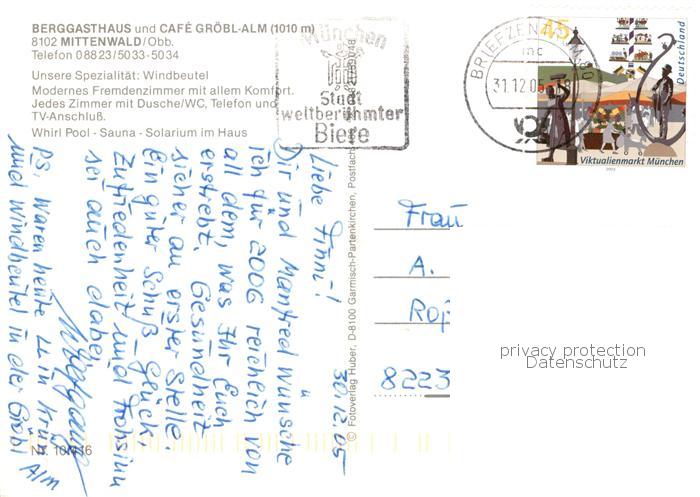 BERGGASTHAUS und CAFÉ GRÖBL-ALM (1010 m)
8102 MITTENWALD/Obb.
Telefon 08823/5033-5034
Unsere Spezialität: Windbeutel
Modernes Fremdenzimmer mit allem Komfort.
Jedes Zimmer mit Dusche/WC, Telefon und
TV-Anschluß.
Whirl Pool - Sauna - Solarium im Haus
München
Stadt
weltberühmter
Biere
BRIEFZENTRUM 80
mc
31.12.05
45
Deutschland
Viktualienmarkt München
2003
30.12.05
Liebe Finni!
Dir und Manfred wünsche
ich für 2006 reichlich von
all dem, was Ihr Euch
erstrebt. Gesundheit
sicher an erster Stelle.
Ein guter Schuß Glück,
Zufriedenheit und Frohsinn
sei auch dabei
Wolfgang
PS. Waren heute LL in
und Windbeutel in der Gröbl Alm
© Fotoverlag Huber, D-8100 Garmisch-Partenkirchen, Postfach
Frau
A.
8223
Nr. 10/416
privacy protection
Datenschutz